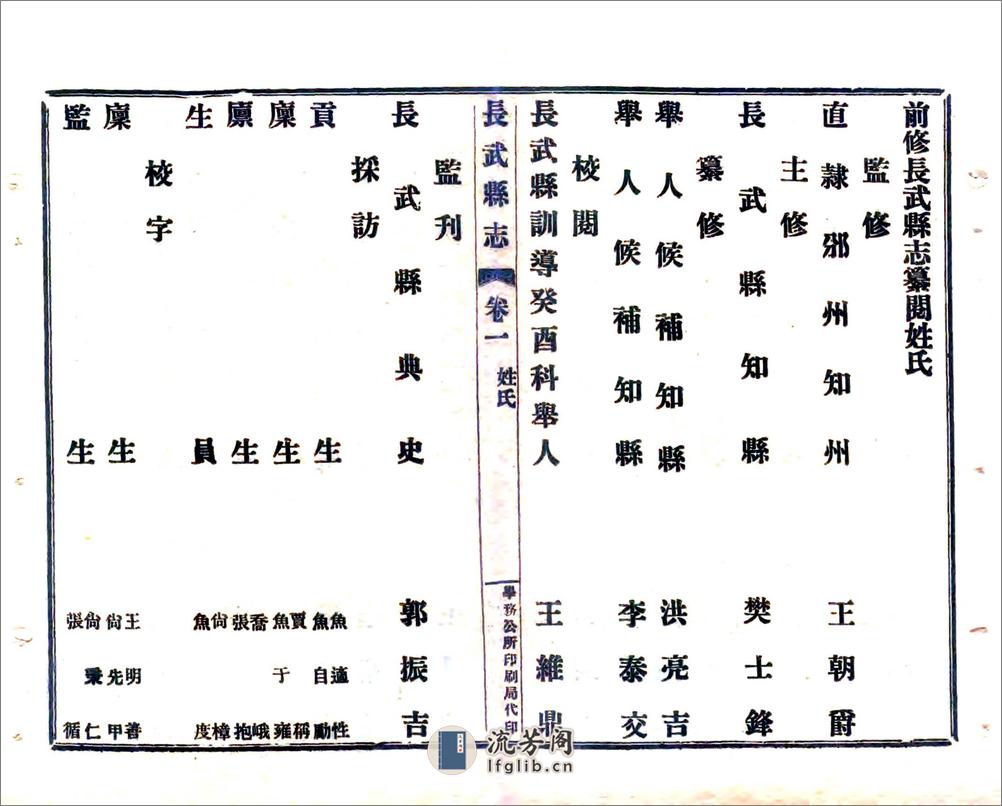 前修長武縣志纂閱姓氏
監修
直隸邠州知州 王朝爵
主修
長武縣知縣 樊士鋒
纂修
舉人候補知縣 洪亮吉
舉人候補知縣 李泰交
校閱
長武縣訓導癸酉科舉人 王維鼎
長武縣志 卷一 姓氏 學務公所印刷局代印
監刊
長武縣典史 郭振吉
採訪
貢生 魚適性 魚自勵
廩生 賈稱 魚于雍
廩生 喬峨 張抱
生員 尙樟 魚度
校字
廩生 王明善 尙先甲
監生 尙秉仁 張循
流芳阁
lfglib.cn